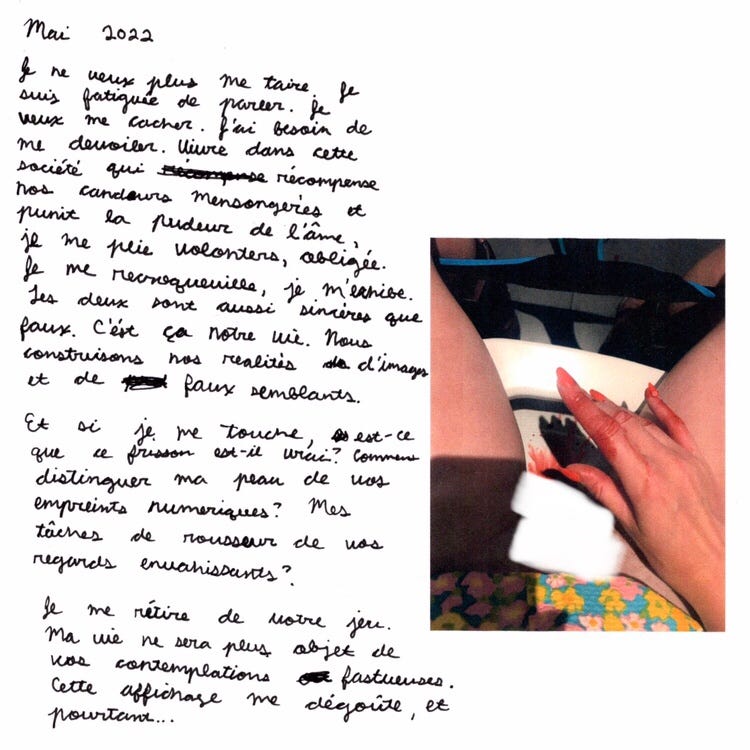 Mai 2022
Je ne veux plus me taire. Je
suis fatiguée de parler. Je
veux me cacher. J'ai besoin de
me devoiler. Vivre dans cette
société qui récompense
nos candeurs mensongeries et
punit la pudeur de l'âme,
je me plie volonters, obligée.
Je me recroqueville, je m'exhibe.
Les deux sont aussi sincères que
faux. C'ést ça notre vie. Nous
construisons nos realités d'images
et de faux semblants.
Et si je me touche, est-ce
que ce frisson est-il vrai? Comment
distinguer ma peau de vos
empreints numeriques? Mes
tâches de rousseur de vos
regards envahissants?
Je me rétire de votre jeu.
Ma vie ne sera plus objet de
vos contemplations fastueuses.
Cette affichage me dégoûte, et
pourtant...